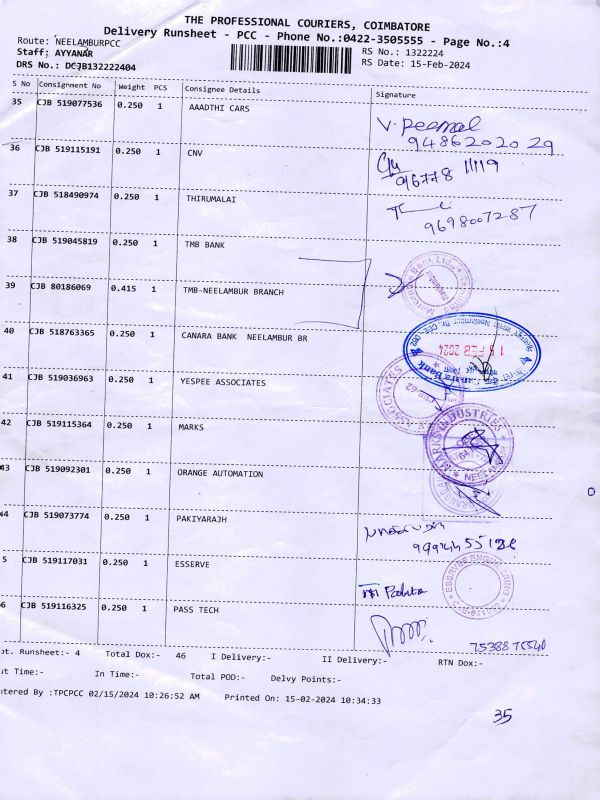 THE PROFESSIONAL COURIERS, COIMBATORE
Delivery Runsheet - PCC - Phone No.:0422-3505555 - Page No.:4
Route: NEELAMBURPCC
RS No.: 1322224
Staff: AYYANAR
RS Date: 15-Feb-2024
DRS No.: DCJB132222404
S No Consignment No Weight PCS Consignee Details Signature
35 CJB 519077536 0.250 1 AAADTHI CARS
9486202029
36 CJB 519115191 0.250 1 CNV
37 CJB 518490974 0.250 1 THIRUMALAI
9698007287
38 CJB 519045819 0.250 1 TMB BANK
39 CJB 80186069 0.415 1 TMB-NEELAMBUR BRANCH
40 CJB 518763365 0.250 1 CANARA BANK NEELAMBUR BR
15 FEB 2024
41 CJB 519036963 0.250 1 YESPEE ASSOCIATES
ASSOCIATES
CBE-62
42 CJB 519115364 0.250 1 MARKS
MARKS INDUSTRIES
43 CJB 519092301 0.250 1 ORANGE AUTOMATION
44 CJB 519073774 0.250 1 PAKIYARAJH
5 CJB 519117031 0.250 1 ESSERVE
6 CJB 519116325 0.250 1 PASS TECH
ot. Runsheet:- 4 Total Dox:- 46 I Delivery:- II Delivery:- RTN Dox:-
ut Time:- In Time:- Total POD:- Delvy Points:-
ntered By :TPCPCC 02/15/2024 10:26:52 AM Printed On: 15-02-2024 10:34:33
35